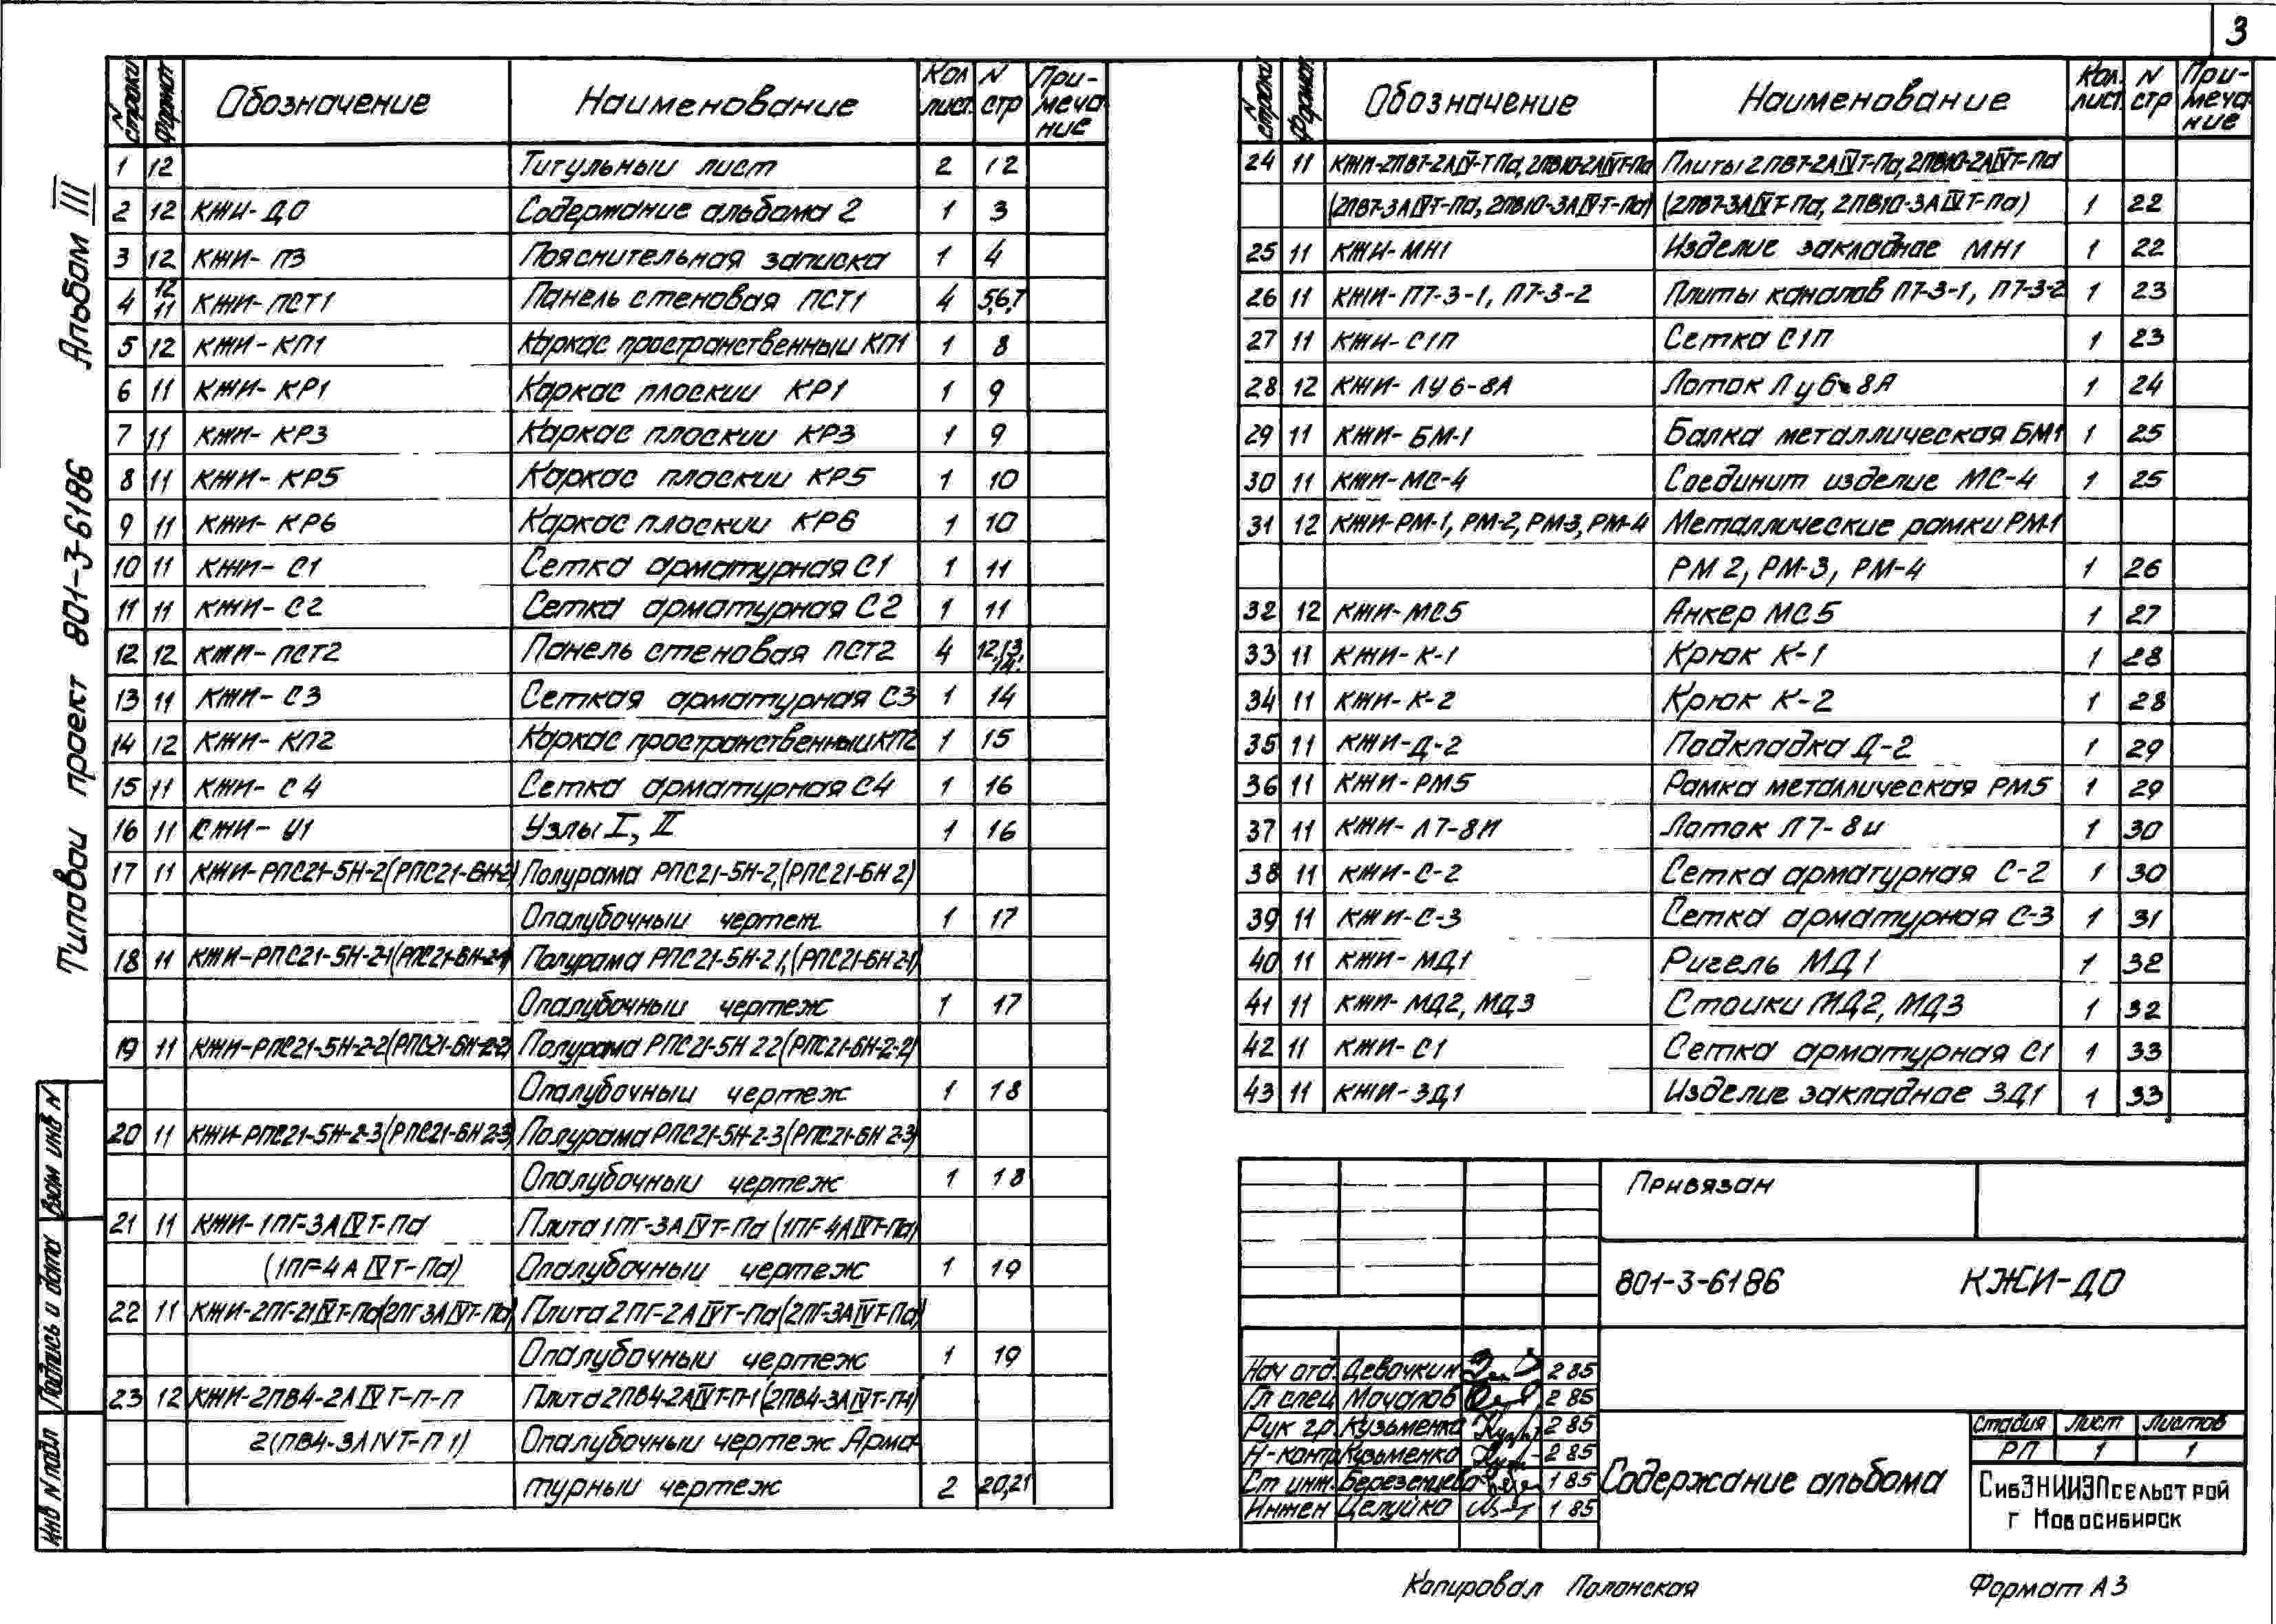 3
Типовой проект 801-3-6186 Альбом III
N строки Формат Обозначение Наименование Кол. лист. N стр Примечание
1 12 Титульный лист 2 1 2
2 12 КЖИ-ДО Содержание альбома 2 1 3
3 12 КЖИ-ПЗ Пояснительная записка 1 4
4 12 11 КЖИ-ПСТ1 Панель стеновая ПСТ1 4 5,6,7
5 12 КЖИ-КП1 Каркас пространственный КП1 1 8
6 11 КЖИ-КР1 Каркас плоский КР1 1 9
7 11 КЖИ-КР3 Каркас плоский КР3 1 9
8 11 КЖИ-КР5 Каркас плоский КР5 1 10
9 11 КЖИ-КР6 Каркас плоский КР6 1 10
10 11 КЖИ-С1 Сетка арматурная С1 1 11
11 11 КЖИ-С2 Сетка арматурная С2 1 11
12 12 КЖИ-ПСТ2 Панель стеновая ПСТ2 4 12,13,14
13 11 КЖИ-С3 Сеткая арматурная С3 1 14
14 12 КЖИ-КП2 Каркас пространственный КП2 1 15
15 11 КЖИ-С4 Сетка арматурная С4 1 16
16 11 КЖИ-У1 Узлы I, II 1 16
17 11 КЖИ-РПС21-5Н-2(РПС21-6Н-2) Полурама РПС21-5Н-2,(РПС21-6Н 2)
Опалубочный чертеж 1 17
18 11 КЖИ-РПС21-5Н-2-1(РПС21-6Н-2-1) Полурама РПС21-5Н-2.1,(РПС21-6Н 2-1)
Опалубочный чертеж 1 17
19 11 КЖИ-РПС21-5Н-2-2(РПС21-6Н-2-2) Полурама РПС21-5Н 2 2 (РПС21-6Н-2-2)
Опалубочный чертеж 1 18
20 11 КЖИ-РПС21-5Н-2-3(РПС21-6Н 2-3) Полурама РПС21-5Н-2-3(РПС21-6Н 2-3)
Опалубочный чертеж 1 18
21 11 КЖИ-1ПГ-3АIVТ-Па Плита 1ПГ-3АIVТ-Па (1ПГ-4АIVТ-Па)
(1ПГ-4АIVТ-Па) Опалубочный чертеж 1 19
22 11 КЖИ-2ПГ-21IVТ-Па(2ПГ 3АIVТ-Па) Плита 2ПГ-2АIVТ-Па(2ПГ-3АIVТ-Па)
Опалубочный чертеж 1 19
23 12 КЖИ-2ПВ4-2АIVТ-П-П Плита 2ПВ4-2АIVТ-П-1(2ПВ4-3АIVТ-П-1)
2(ПВ4-3АIVТ-П 1) Опалубочный чертеж Арма-
турный чертеж 2 20,21
N строки Формат Обозначение Наименование Кол. лист. N стр Примечание
24 11 КЖИ-2ПВ7-2АIV-Т Па, 2ПВ10-2АIVТ-Па Плиты 2ПВ7-2АIVТ-Па, 2ПВ10-2АIVТ-Па
(2ПВ7-3АIVТ-Па, 2ПВ10-3АIV-Т-Па) (2ПВ7-3АIVТ-Па, 2ПВ10-3АIVТ-Па) 1 22
25 11 КЖИ-МН1 Изделие закладное МН1 1 22
26 11 КЖИ-П7-3-1, П7-3-2 Плиты каналов П7-3-1, П7-3-2 1 23
27 11 КЖИ-С1П Сетка С1П 1 23
28 12 КЖИ-ЛУ6-8А Лоток Лу6-8А 1 24
29 11 КЖИ-БМ-1 Балка металлическая БМ1 1 25
30 11 КЖИ-МС-4 Соединит изделие МС-4 1 25
31 12 КЖИ-РМ-1, РМ-2, РМ-3, РМ-4 Металлические рамки РМ-1
РМ 2, РМ-3, РМ-4 1 26
32 12 КЖИ-МС5 Анкер МС5 1 27
33 11 КЖИ-К-1 Крюк К-1 1 28
34 11 КЖИ-К-2 Крюк К-2 1 28
35 11 КЖИ-Д-2 Подкладка Д-2 1 29
36 11 КЖИ-РМ5 Рамка металлическая РМ5 1 29
37 11 КЖИ-Л7-8И Лоток Л7-8и 1 30
38 11 КЖИ-С-2 Сетка арматурная С-2 1 30
39 11 КЖИ-С-3 Сетка арматурная С-3 1 31
40 11 КЖИ-МД1 Ригель МД1 1 32
41 11 КЖИ-МД2, МД3 Стойки МД2, МД3 1 32
42 11 КЖИ-С1 Сетка арматурная С1 1 33
43 11 КЖИ-ЗД1 Изделие закладное ЗД1 1 33
Привязан
801-3-6186 КЖИ-ДО
Нач отд. Девочкин 2 85
Гл спец Мочалов 2 85
Рук гр. Кузьменко 2 85
Н-контр Кузьменко 2 85
Ст инж. Березенцева 1 85
Инжен Целуйко 1 85
Содержание альбома
Стадия Лист Листов
РП 1 1
СибЗНИИЭПсельстрой
г Новосибирск
Инв N подл Подпись и дата Взам инв N
Копировал Полонская Формат А3